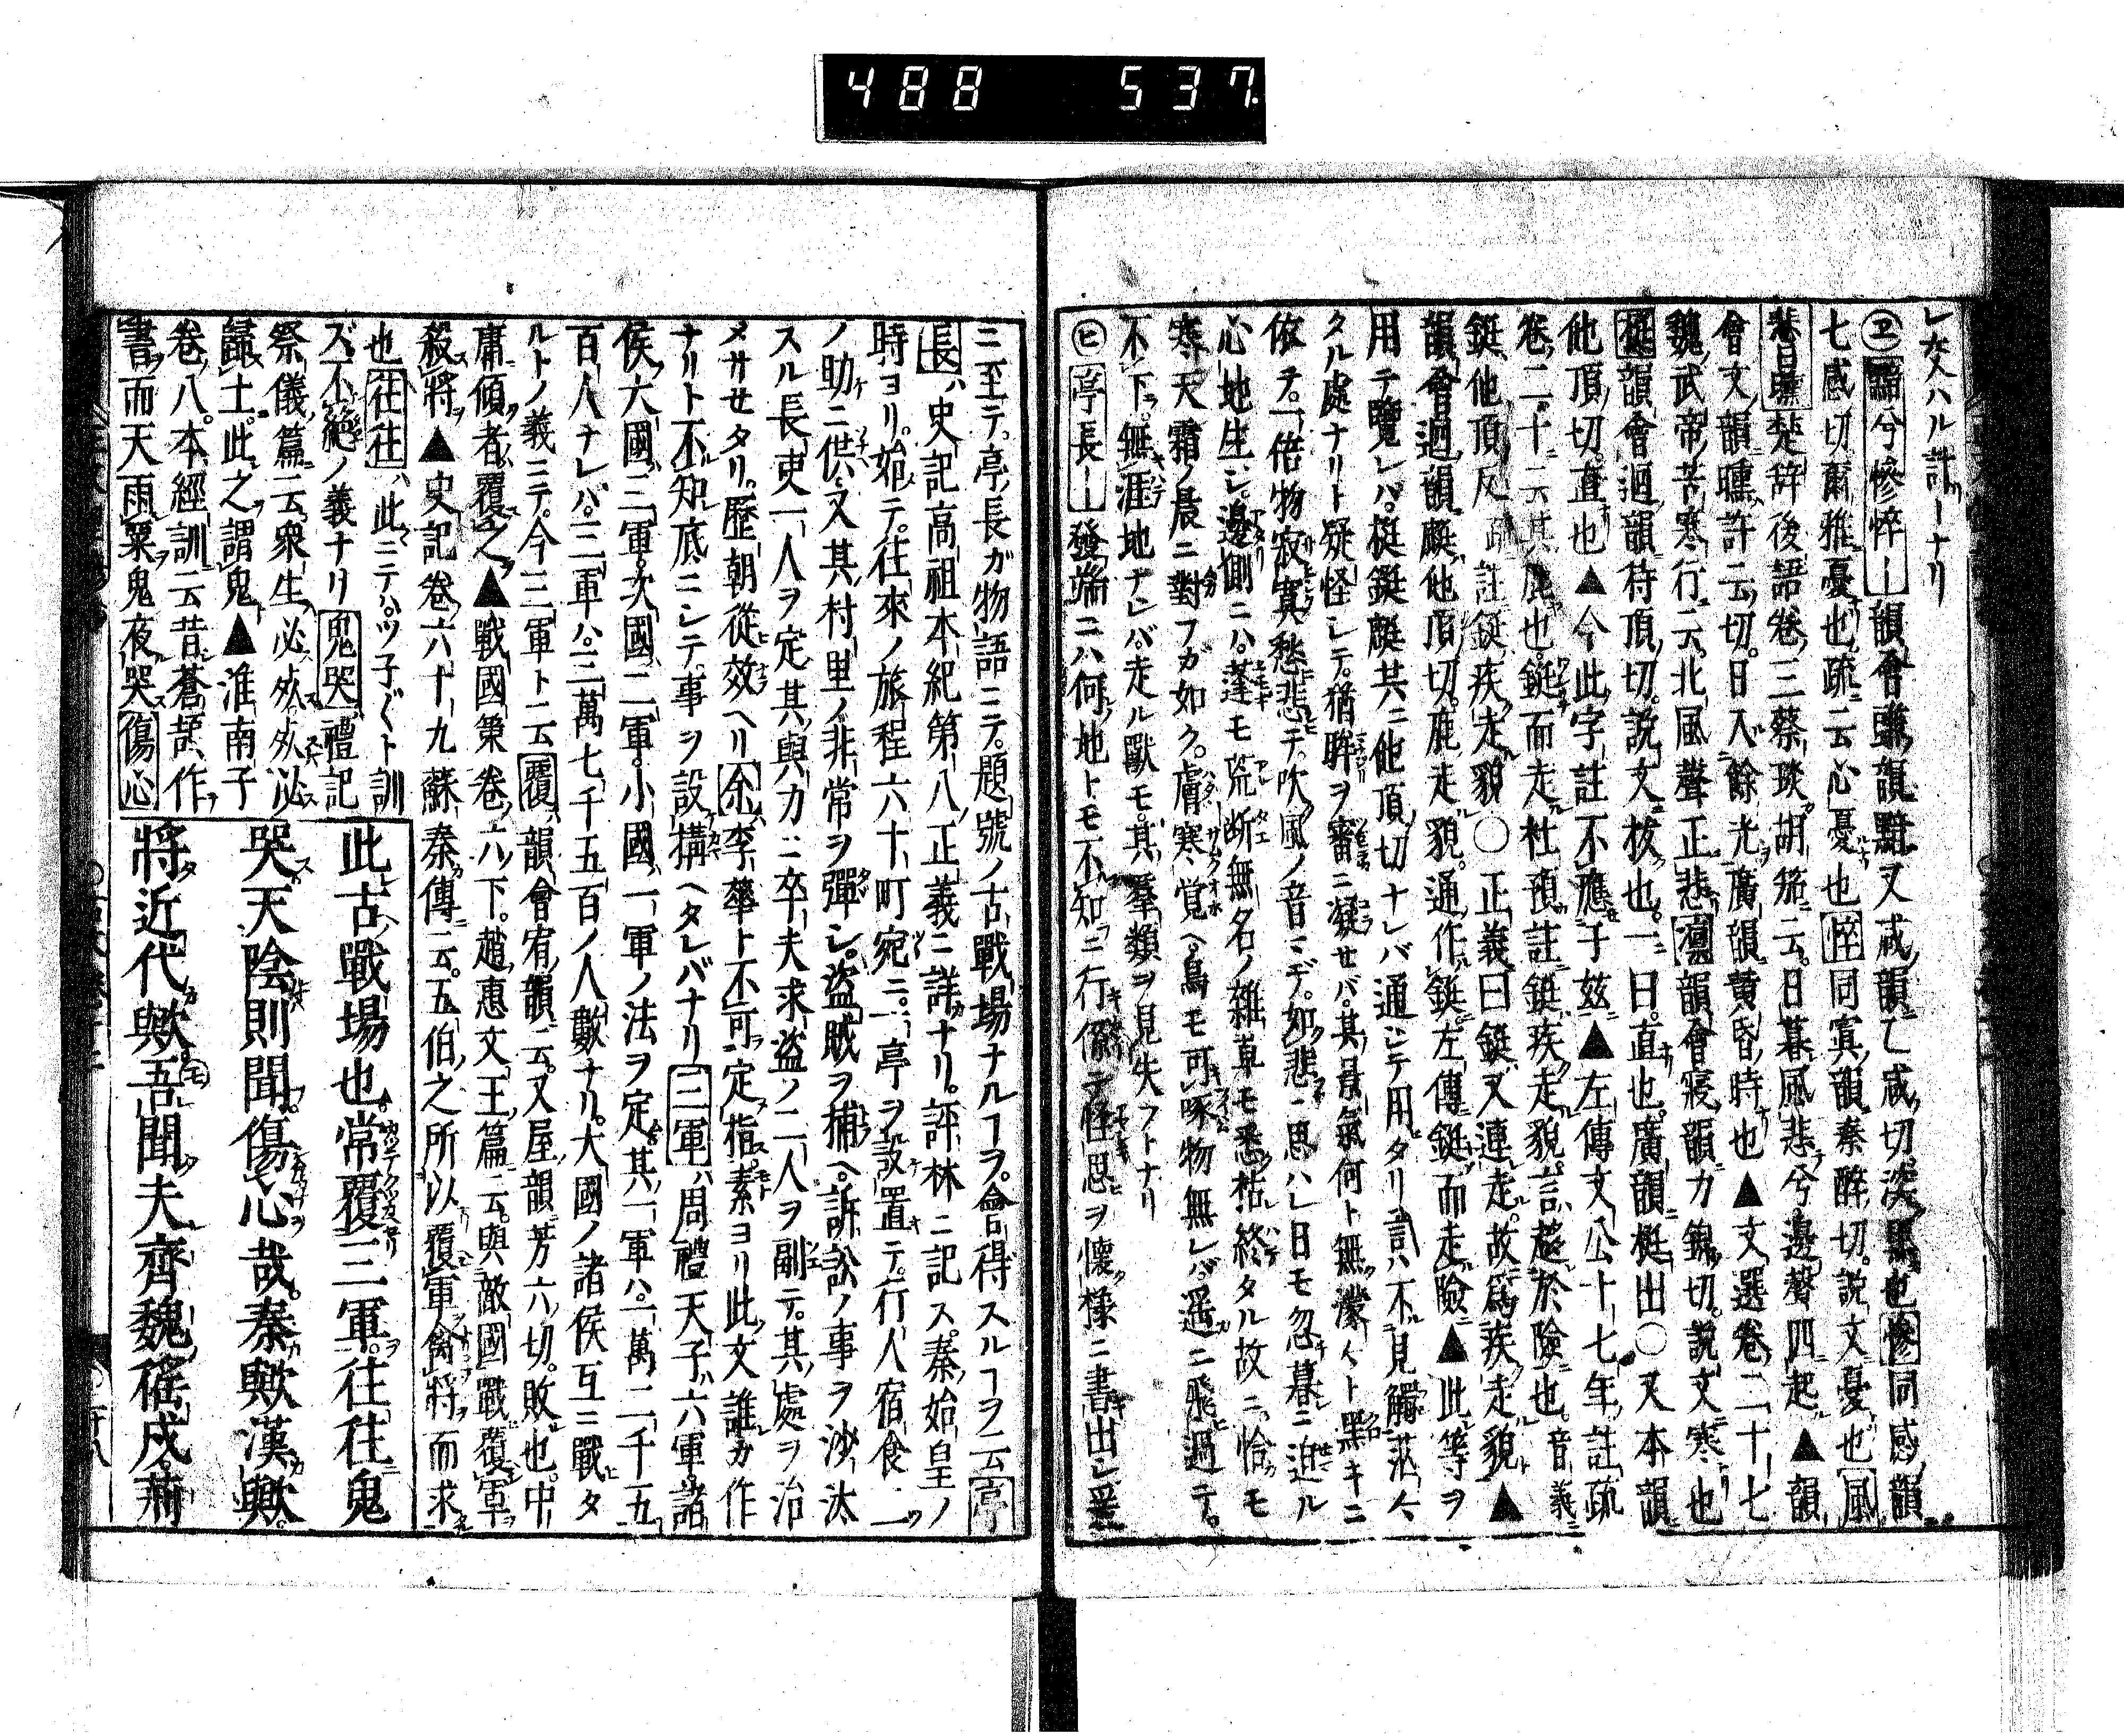 488 537
レ交ハル許ーナリ
㋓黯兮慘悴ー韻會豏韻黯又咸韻乙咸切深黒也慘同感韻
七感切爾雅憂也疏云心憂也悴同寘韻秦醉切說文憂也風
悲日曛楚辞後語卷三蔡琰胡笳云日暮風悲兮邊聲四起▲韻
會文韻曛許云切日入餘光廣韻黄昏時也▲文選卷二十七
魏武帝苦寒行云北風聲正悲凛韻會寝韻力錦切說文寒也
挺韻會迥韻待頂切說文拔也一曰直也廣韻梃出〇又本韻
他頂切直也▲今此字註不應于玆▲左傳文公十七年註疏
卷二十云其鹿也鋌而走杜預註鋌疾走貌言趍於險也音義
鋌他頂反疏註鋌疾走貌〇正義曰鋌又連走故爲疾走貌▲
韻會迥韻䴎他頂切鹿走貌通作鋌左傳鋌而走險▲此等ヲ
用テ覽レハ梃鋌䴎共ニ他頂切ナレバ通シテ用タリ言ハ不見觸茫々
タル處ナリト疑怪レテ猶眸ヲ審ニ凝セバ其景氣何ト無濛々ト黑キニ
依テ倍物寂寞愁悲テ吹風ノ音ミデ如悲思ハレ日モ忽暮ニ迫ル
心地生レ邊側ニハ蓬モ荒断無名ノ雜草モ悉枯終タル故ニ恰モ
寒天霜ノ晨ニ對フガ如ク膚寒覚ヘ鳥モ可啄物無レバ遥ニ飛過テ
不下無涯地ナレバ走ル獸モ其羣類ヲ見失フトナリ
㋪亭長ー發端ニハ何地トモ不知ニ行係テ怪思ヲ懷樣ニ書出レ爰
ニ至テ亭長ガ物語ニテ題號ノ古戰場ナルヿヲ會得スルヿヲ云亭
長ハ史記高祖本紀第八正義ニ詳ナリ評林ニ記ス秦始皇ノ
時ヨリ始テ往來ノ旅程六十町宛ニ一亭ヲ設置テ行人宿食ー
ノ助ニ供又其村里ノ非常ヲ彈レ盜賊ヲ捕ヘ訴訟ノ事ヲ沙汰
スル長吏一人ヲ定其與力ニ卒夫求盜ノ二人ヲ副テ其處ヲ治
メサセタリ歷朝從效ヘリ余李華ト不可定指素ヨリ此文誰カ作
ナリト不知底ニレテ事ヲ設構ヘタレバナリ三軍ハ周禮天子六軍諸
侯大國三軍次國二軍小國一軍ノ法ヲ定其一軍ハ一萬二千五
百人ナレバ三軍ハ三萬七千五百ノ人數ナリ大國ノ諸侯互ニ戰タ
ルトノ義ニテ今三軍ト云覆韻會宥韻云又屋韻芳六切敗也中
庸傾者覆之▲戰國策卷六下趙惠文王篇云與敵國戰覆軍
殺將▲史記卷六十九蘇秦傳云五伯之所以覆軍禽將而求
也往往ハ此ニテハツ子グト訓
ズ不絕ノ義ナリ鬼哭禮記
祭儀篇云衆生必死死必
歸土此之謂鬼▲淮南子
卷八本經訓云昔蒼頡作
書而天雨粟鬼夜哭傷心
此古戰場也常覆三軍往往鬼
哭天陰則聞傷心哉秦歟漢歟
將近代歟㋲吾聞夫齊魏徭戍荊